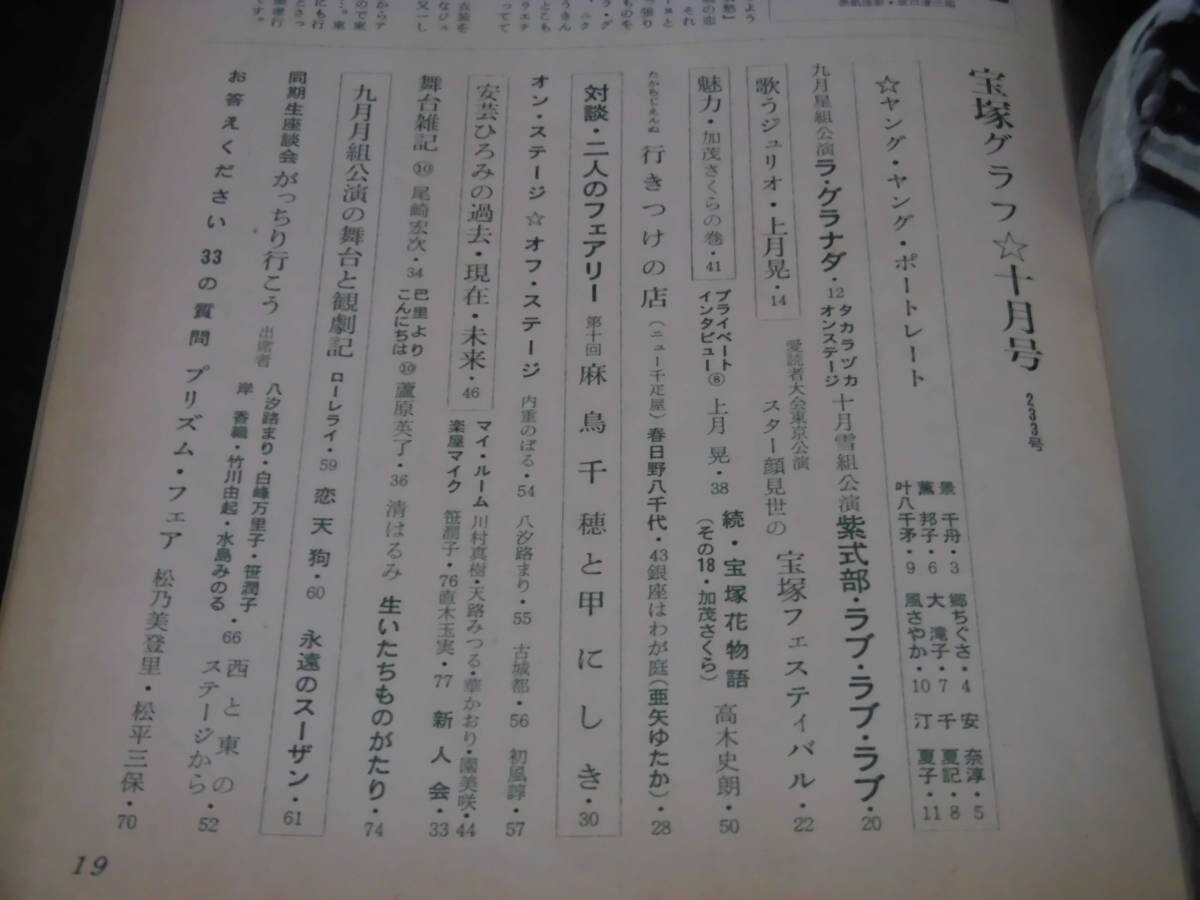 宝塚グラフ☆十月号 233号
☆ヤング・ヤング・ポートレート
景 千舟・3 郷ちぐさ・4 安 奈淳・5
薫 邦子・6 大 滝子・7 千 夏記・8
叶八千矛・9 風さやか・10 汀 夏子・11
九月星組公演 ラ・グラナダ・12 タカラヅカオンステージ 十月雪組公演 紫式部・ラブ・ラブ・ラブ・20
歌うジュリオ・上月晃・14 愛読者大会東京公演 スター顔見世の 宝塚フェスティバル・22
魅力・加茂さくらの巻・41 プライベートインタビュー⑧ 上月 晃・38 続・宝塚花物語(その18・加茂さくら) 高木史朗・50
たからじぇんぬ 行きつけの店(ニュー千疋屋)春日野八千代・43 銀座はわが庭(亜矢ゆたか)・28
対談・二人のフェアリー 第十回 麻鳥千穂と甲にしき・30
オン・ステージ☆オフ・ステージ 内重のぼる・54 八汐路まり・55 古城都・56 初風諄・57
安芸ひろみの過去・現在・未来・46 マイ・ルーム 川村真樹・天路みつる・華かおり・園美咲・44
楽屋マイク 笹潤子・76 直木玉実・77 新人会・33
舞台雑記⑩ 尾崎宏次・34 巴里よりこんにちは⑩ 蘆原英了・36 清はるみ 生いたちものがたり・74
九月月組公演の舞台と観劇記 ローレライ・59 恋天狗・60 永遠のスーザン・61
同期生座談会 がっちり行こう 出席者 八汐路まり・白峰万里子・笹潤子
岸 香織・竹川由起・水島みのる・66 西と東のステージから・52
お答えください 33の質問 プリズム・フェア 松乃美登里・松平三保・70
19